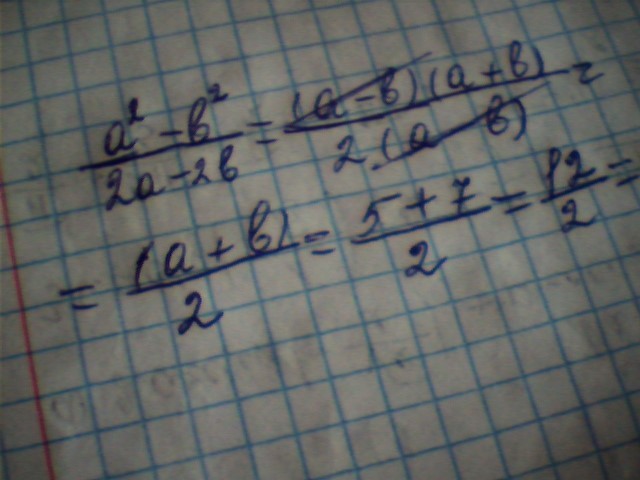 a² - b² / 2a - 2b = (a - b)(a + b) / 2(a - b) =
= (a + b) / 2 = 5 + 7 / 2 = 12 / 2 =